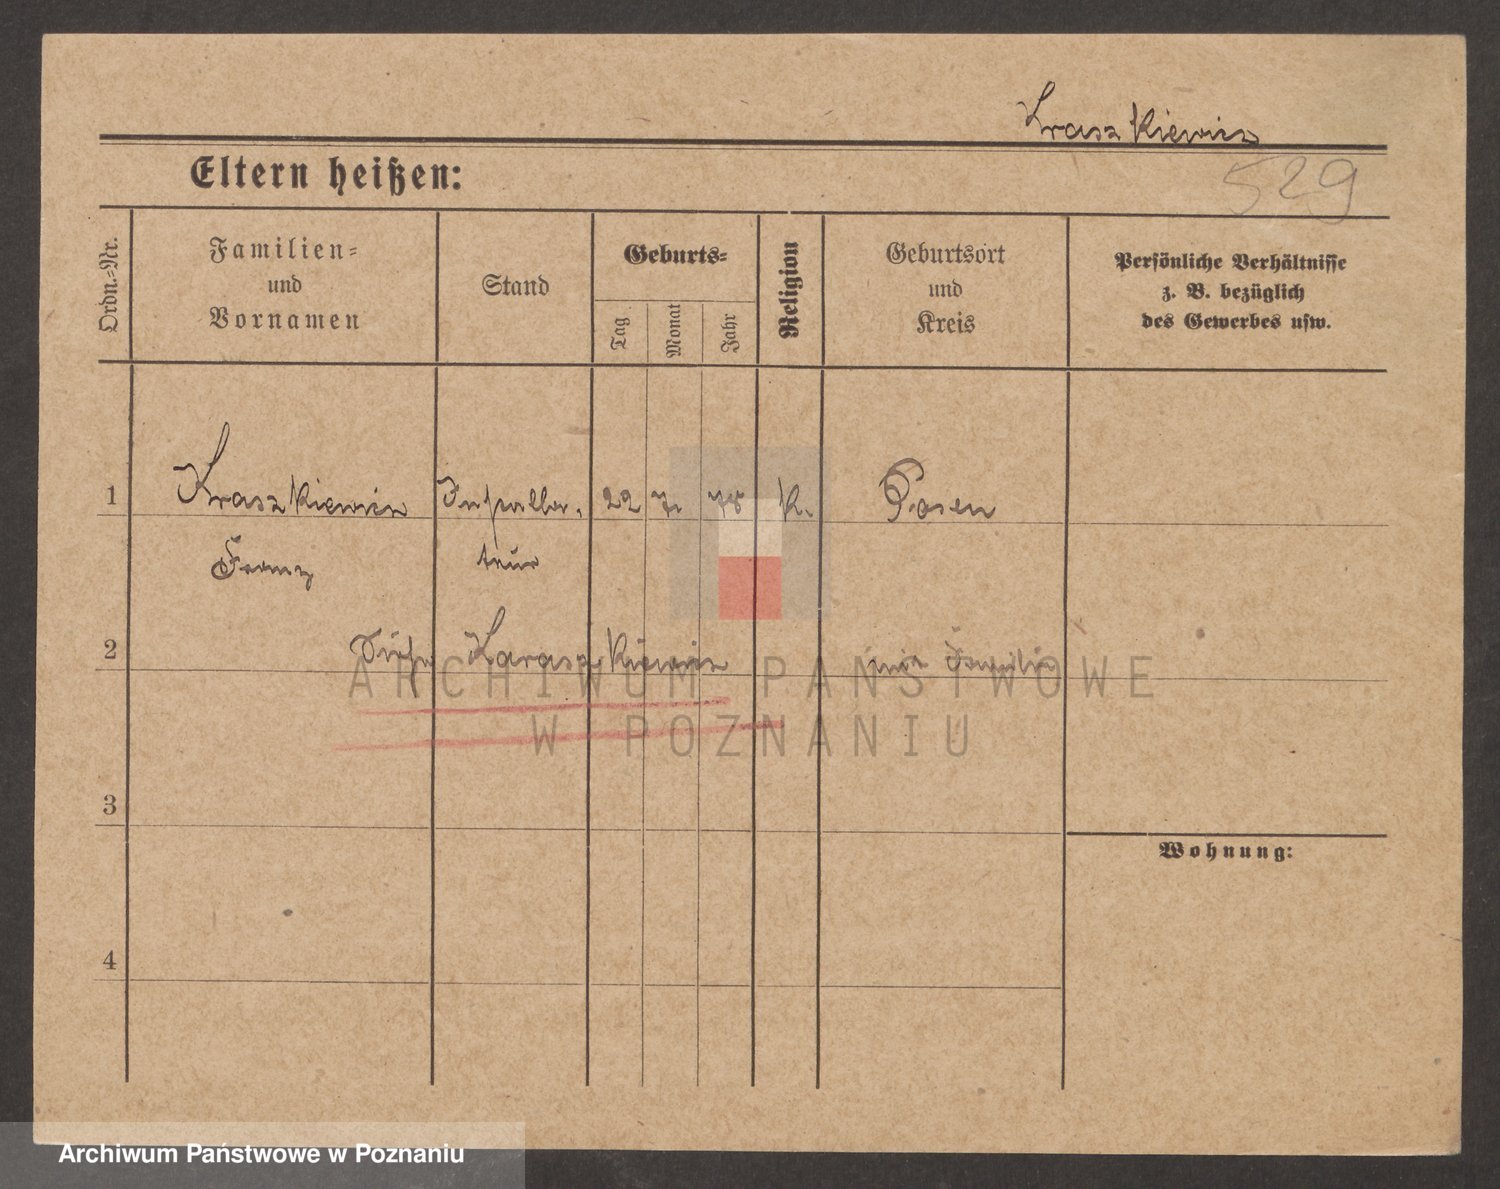 Kraszkiewicz
529
Eltern heißen:
Ordn.=Nr.
Familien=
und
Vornamen
Stand
Geburts=
Tag
Monat
Jahr
Religion
Geburtsort
und
Kreis
Persönliche Verhältnisse
z. B. bezüglich
des Gewerbes usw.
1 Kraszkiewicz Installa- 22 7. 78 K. Posen
Franz teur
2 Siehe Karaszkiewicz mit Familie
ARCHIWUM PAŃSTWOWE
W POZNANIU
3
Wohnung:
4
Archiwum Państwowe w Poznaniu